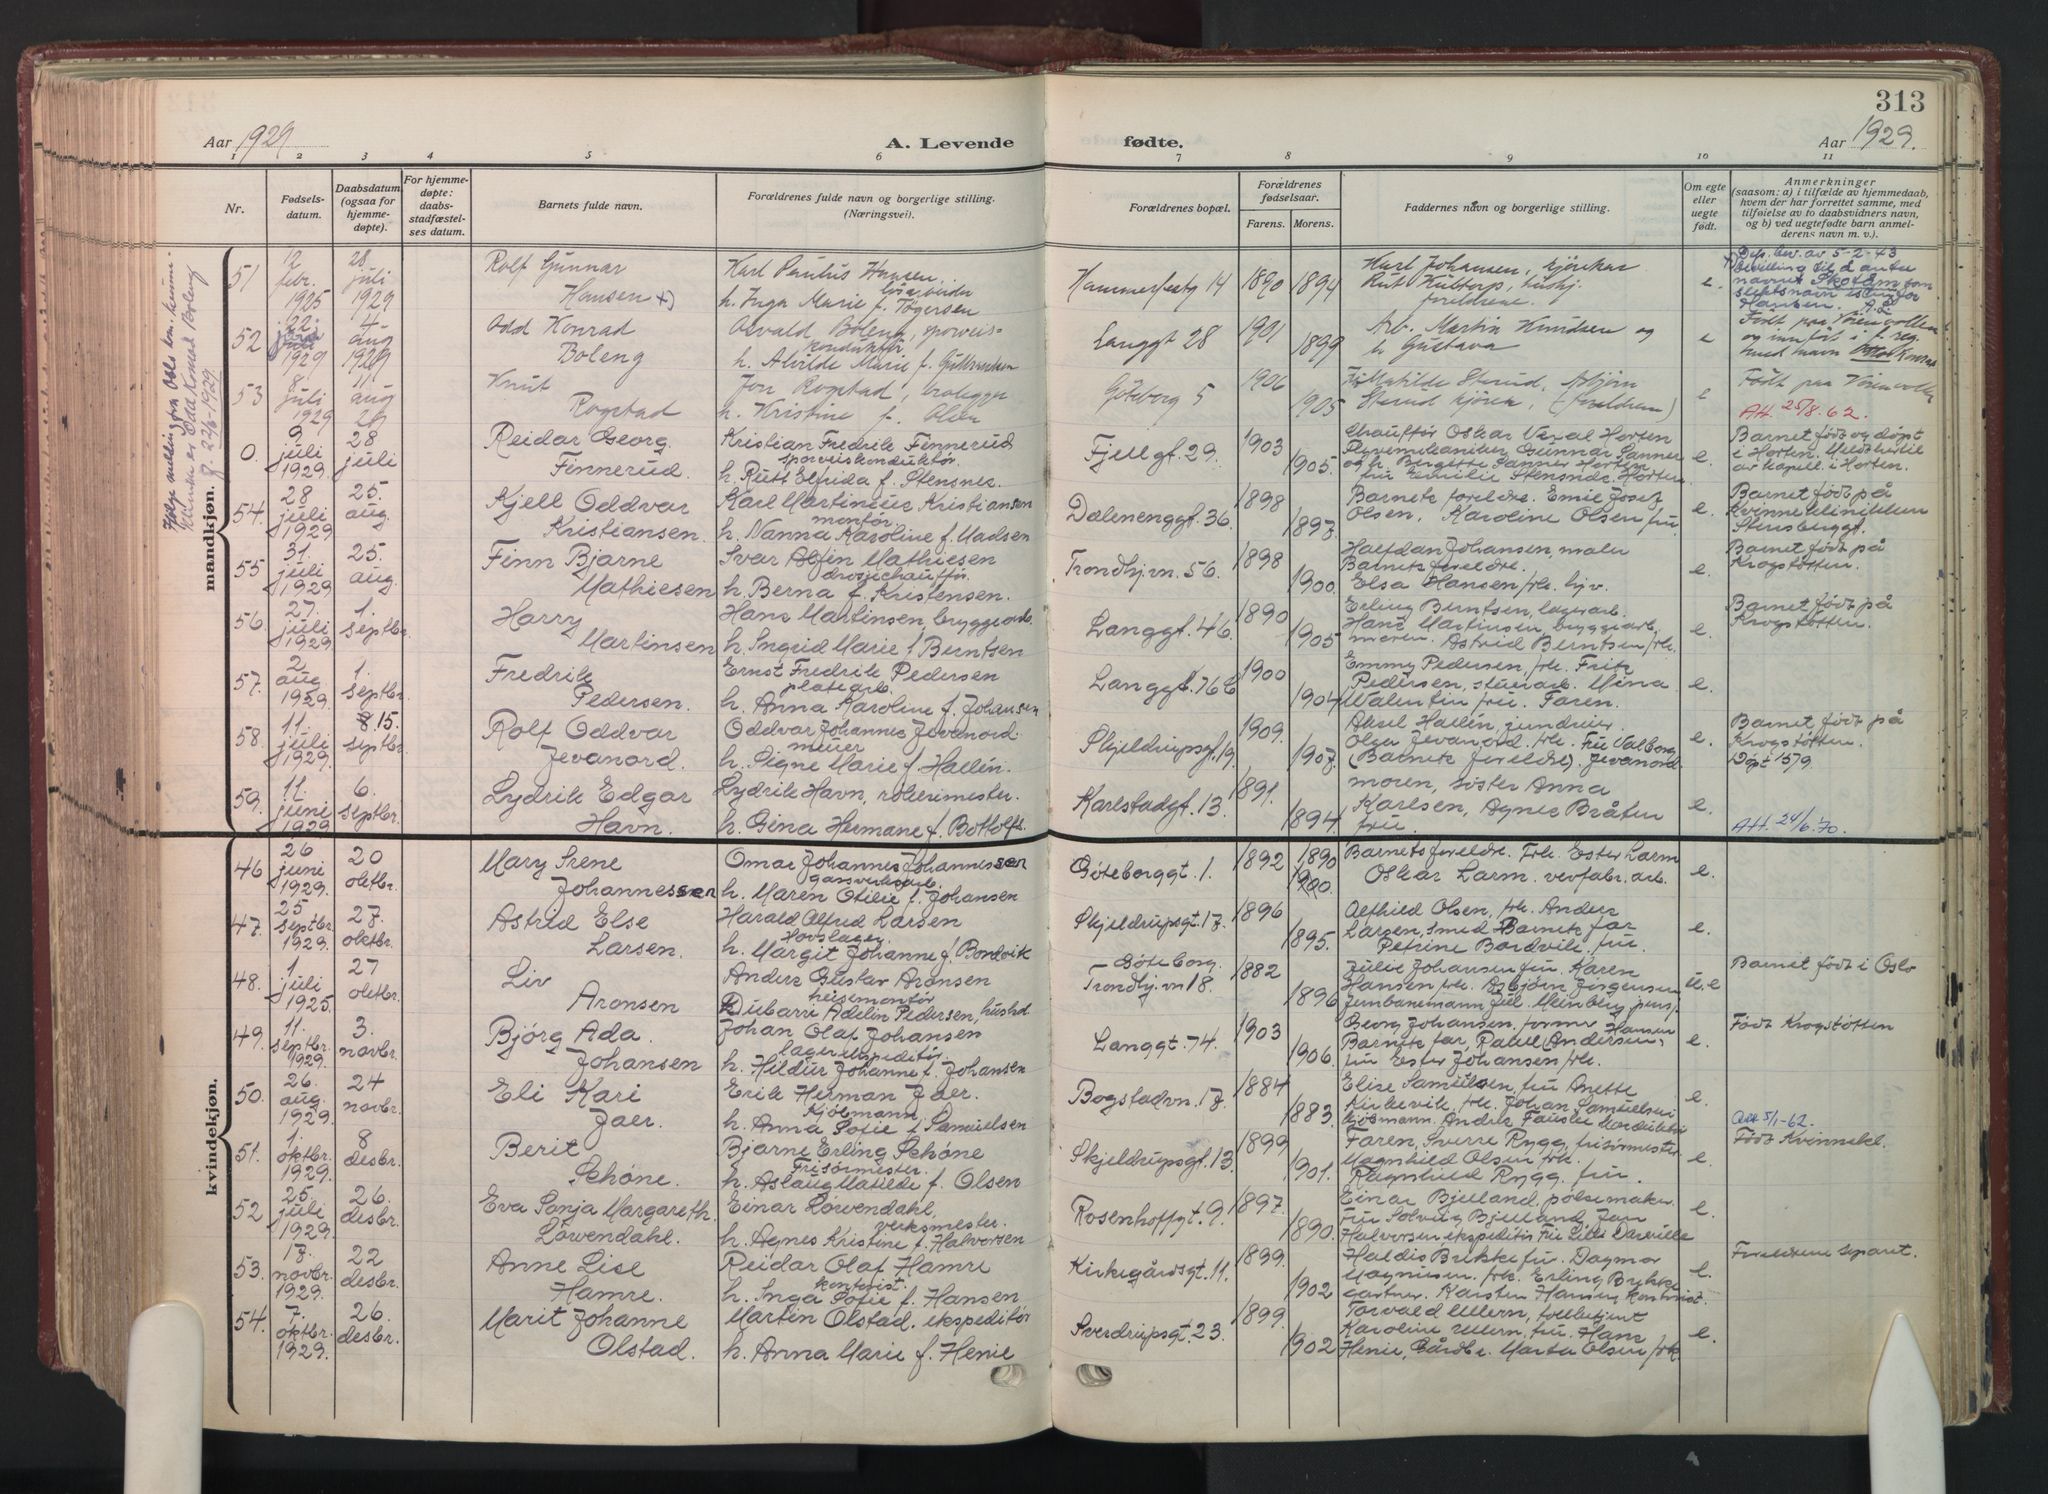 313
Aar 1929
A. Levende
fødte.
Aar 1929.
1 2 3 4 5 6 7 8 9 10 11
Nr.
Fødselsdatum.
Daabsdatum (ogsaa for hjemmedøpte).
For hjemmedøpte: daabsstadfæstelses datum.
Barnets fulde navn.
Forældrenes fulde navn og borgerlige stilling.
(Næringsvei).
Forældrenes bopæl.
Forældrenes fødselsaar.
Farens. Morens.
Faddernes navn og borgerlige stilling.
Om egte eller uegte født.
Anmerkninger
(saasom: a) i tilfælde av hjemmedaab,
hvem der har forrettet samme, med
tilføielse av to daabsvidners navn,
og b) ved uegtefødte barn anmelderens navn m. v.).
mandkjøn.
51 12 febr. 1925 28 juli 1929
Rolf Gunnar
Hansen x)
Karl Paulus Hansen,
h. Inga Marie f. Tøgersen
Hammerfestg 14 1890 1894
Karl Johansen, kjørekar
foreldrene.
e.
Dep. bev. av 5-2-43
52 juli 1929 4 aug 1929
Odd Konrad
Boleng
Osvald Boleng, sporveiskonduktør
h. Alvilde Marie f. Gulbrandsen
Langgt 28 1901 1899
Arb. Martin Knudsen og
h. Gustava
e
Født paa Voienvollen
53 8 juli 1929 11 aug 29
Knut
Rogstad
Jon Rogstad, brolegger
h. Kristine f. Olsen
Göteborg 5 1906 1905
e
Født paa Voienvollen
Att. 25/8. 62.
0. 9 juli 1929 28 juli
Reidar Georg
Finnerud.
Kristian Fredrik Finnerud
sporveiskonduktør.
h. Rutt Elfrida f. Stensnes.
Fjellgt. 29. 1903 1905.
Chauffør Oskar Veral Horten
Flyvemekaniker Gunnar Sanner
og h. Birgitte Sanner Horten
fru Emilie Stensnes Horten
e.
Barnet født og døpt
i Horten. Meldt hertil
av kapell. i Horten.
54. 28 juli 1929 25. aug.
Kjell Oddvar
Kristiansen.
Karl Martinius Kristiansen
montør
h. Nanna Karoline f. Madsen
Dælenenggt. 36. 1898 1897.
Barnets foreldre. Emie Josef
Olsen, Karoline Olsen fru
e.
Barnet født på
kvinneklinikken
Stensberggt.
55 31. juli 1929 25. aug.
Finn Bjarne
Mathiesen
Ivar Alfin Mathiesen
drosjechauffør.
h. Berna f. Kristensen.
Trondhj.vn. 56. 1898 1900.
Halfdan Johansen, maler
Barnets foreldre.
Elsa Hansen frk. hjv.
e.
Barnet født på
Krogstøtten.
56. 27. juli 1929 1. septbr.
Harry
Martinsen
Hans Martinsen, bryggearb.
h. Ingrid Marie f. Berntsen
Langgt. 46. 1890 1905
Erling Berntsen, lagerarb.
Hans Martinsen, bryggearb.
moren. Astrid Berntsen frk.
e.
Barnet født på
Krogstøtten.
57. 2 aug. 1929. 1. septbr.
Fredrik
Pedersen.
Ernst Fredrik Pedersen
platearb.
h. Anna Karoline f. Johansen
Langgt. 76 b 1900 1904
Emmy Pedersen, frk. Fritz
Pedersen, stuerarb. Mina
Walentin fru. Faren.
e.
58. 11. juli 1929. 15. septbr.
Rolf Oddvar
Jevanord.
Oddvar Johannes Jevanord.
murer
h. Signe Marie f. Hallén.
Skjeldrupsgt. 19. 1909. 1907.
Aksel Hallén, jerndreier
Olga Jevanord. frk. Fru Valborg
(Barnets foreldre). Jevanord.
e.
Barnet født på
Krogstøtten.
Døpt 15/9.
59. 11. juni 1929 6. septbr.
Lydrik Edgar
Havn.
Lydrik Havn, rørlermester.
h. Gina Hermane f. Bottolfs.
Karlstadgt. 13. 1891. 1894
moren, søster Anna
Karlsen, Agnes Bråten
fru.
e.
Att. 24/6. 70.
kvindekjøn.
46 26 juni 1929. 20 oktbr.
Mary Irene
Johannessen
Omar Johannes Johannessen
gassverksarb.
h. Maren Otilie f. Johansen
Göteborggt. 1. 1892 1890 1900.
Barnets foreldre. Frk. Ester Larm
Oskar Larm. vevfabr. arb.
e.
47. 25 septbr. 1929. 27. oktbr.
Astrid Else
Larsen.
Harald Alfred Larsen
Hovslager.
h. Margit Johanne f. Bordvik
Skjeldrupsgt. 17. 1896 1895.
Alfhild Olsen, frk. Anders
Larsen, smed Barnets far
Petrine Bordvik, fru.
e.
48. 1. juli 1925. 27 oktbr.
Liv
Aronsen
Anders Gustav Aronsen
heisemontør
Dubarri Adelin Pedersen, hushd.
Göteborg.
Trondhj.vn 18. 1882 1896
Julie Johansen fru. Karen
Hansen frk. Asbjørn Jørgensen
u. e
Barnet født i Oslo
49. 11. septbr. 1929. 3. novbr.
Bjørg Ada
Johansen
Johan Olaf Johansen
lagerekspeditør
h. Hildur Johanne f. Johansen
Langgt. 74. 1903 1906.
Georg Johansen, former Hansen
Barnets far, Paula Andersen,
fru Ester Johansen frk.
e.
Født Krogstøtten
50. 26. aug. 1929. 24 novbr.
Eli Kari
Jaer.
Erik Herman Jaer.
Kjøbmann,
h. Anna Sofie f. Samuelsen
Bogstadvn. 17. 1884 1883
Elise Samuelsen, fru Anette
Kirkevik, frk. Johan Samuelsen
e.
Att 5/1-62.
51. 1. oktbr. 1929. 8 desbr.
Berit
Schöne.
Bjarne Erling Schöne
Frisørmester.
h. Aslaug Matilde f. Olsen
Skjeldrupsgt. 13. 1899 1901.
Faren, Sverre Rygg, frisørmester
Magnhild Olsen frk.
Ragnhild Rygg, fru.
e.
Født Kvinnekl.
52 25. juli 1929. 26. desbr.
Eva Sonja Margareth.
Löwendahl.
Einar Löwendahl,
verksmester.
h. Agnes Kristine f. Halvorsen
Rosenhoffgt. 9. 1897. 1890.
Einar Bjelland, pølsemaker
fru Solveig Bjelland, Jan
Halvorsen ekspeditør
e.
53. 17. novbr. 1929. 22 desbr.
Anne Lise
Hamre.
Reidar Olaf Hamre
kontorist.
h. Inga Sofie f. Hansen
Kirkegårdsgt. 11. 1899. 1902
Haldis Brekke fru. Dagmar
Magnusen frk. Erling Brekke
gartner. Karsten Hansen kontorist.
e.
Foreldrene separert.
54. 7. oktbr. 1929. 26. desbr.
Marit Johanne
Olstad.
Martin Olstad, ekspeditør
h. Anna Marie f. Henie
Sverdrupsgt. 23. 1899. 1902
Torvald Ullern, tollbetjent
Karoline Ullern, fru. Hans
Henie, Gårdbr. Marta Olsen frk.
e.